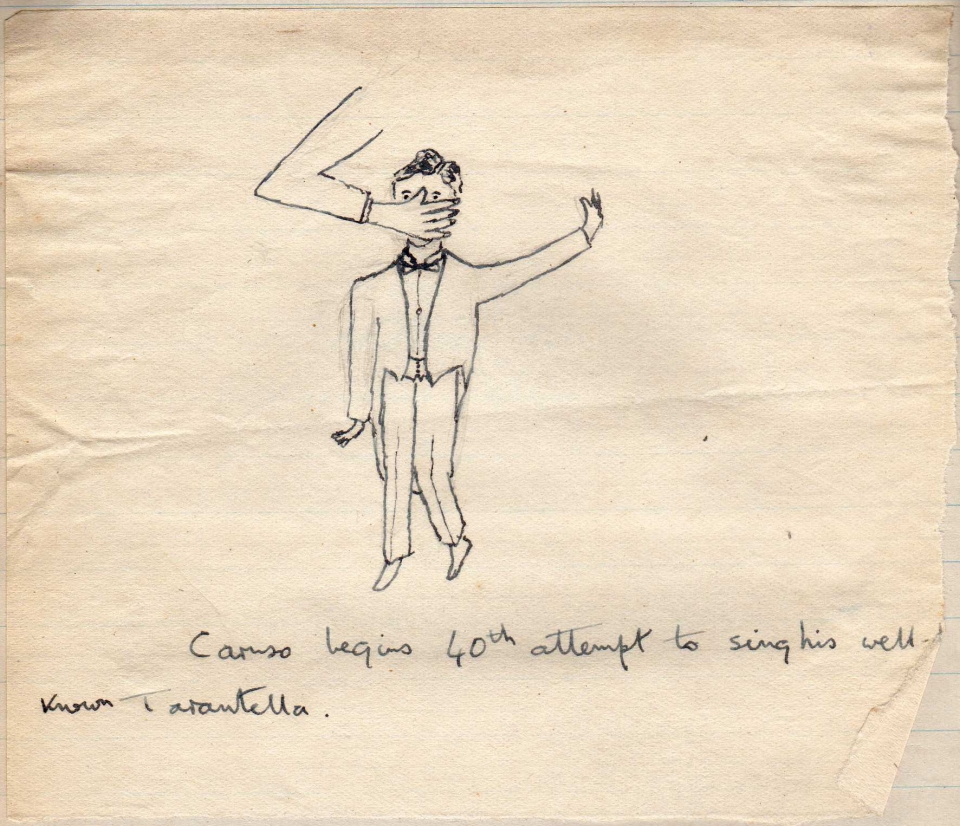 Caruso begins 40th attempt to sing his well-
known Tarantella.